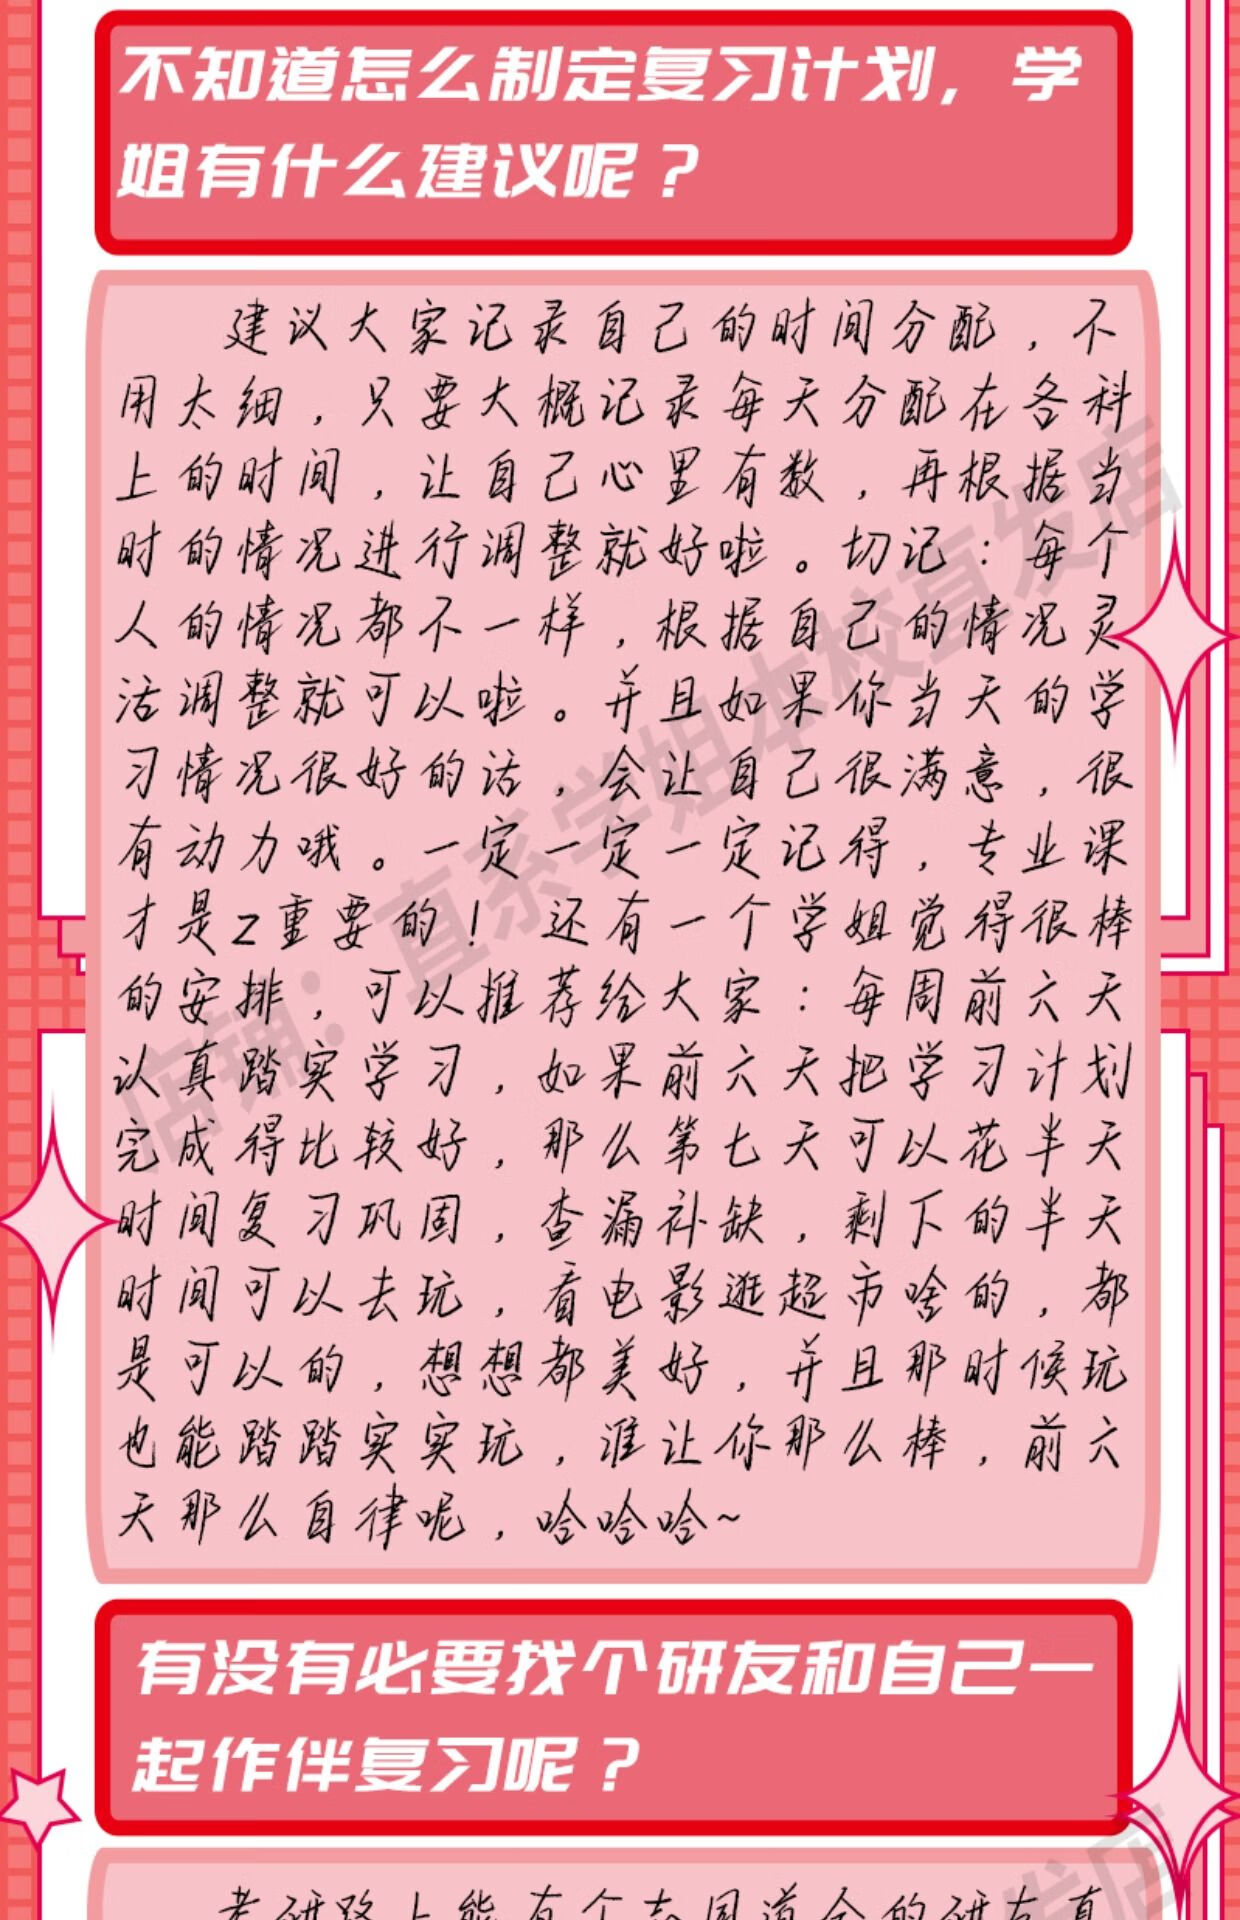 不知道怎么制定复习计划，学
姐有什么建议呢？
建议大家记录自己的时间分配，不
用太细，只要大概记录每天分配在各科
上的时间，让自己心里有数，再根据当
时的情况进行调整就好啦。切记：每个
人的情况都不一样，根据自己的情况灵
活调整就可以啦。并且如果你当天的学
习情况很好的话，会让自己很满意，很
有动力哦。一定一定一定记得，专业课
才是z重要的！还有一个学姐觉得很棒
的安排，可以推荐给大家：每周前六天
认真踏实学习，如果前六天把学习计划
完成得比较好，那么第七天可以花半天
时间复习巩固，查漏补缺，剩下的半天
时间可以去玩，看电影逛超市啥的，都
是可以的，想想都美好，并且那时候玩
也能踏踏实实玩，谁让你那么棒，前六
天那么自律呢，哈哈哈~
店铺：直系学姐本校直发店
有没有必要找个研友和自己一
起作伴复习呢？
考研路上能有个志同道合的研友真
发店